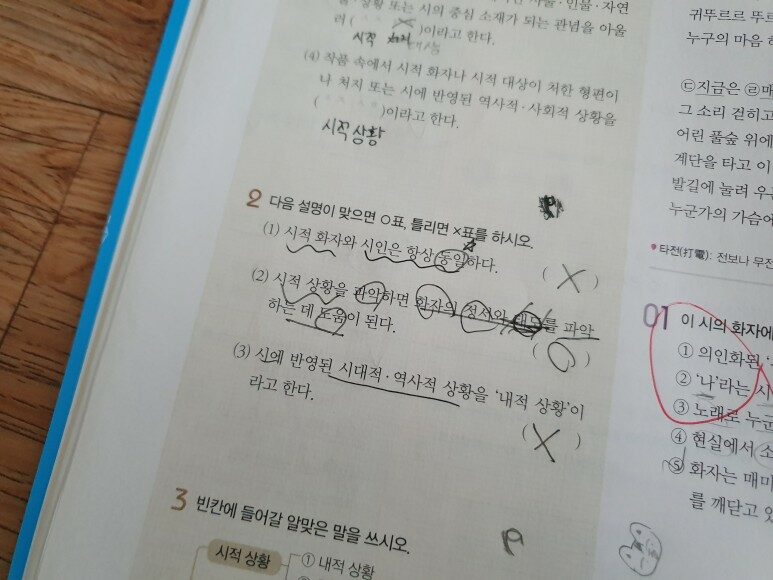 상황 또는 시의 중심 소재가 되는 관념을 아울
러 ( )이라고 한다.
시적
(4) 작품 속에서 시적 화자나 시적 대상이 처한 형편이
나 처지 또는 시에 반영된 역사적·사회적 상황을
( )이라고 한다.
시적 상황
2 다음 설명이 맞으면 ○표, 틀리면 ×표를 하시오.
(1) 시적 화자와 시인은 항상 동일하다.
( X )
(2) 시적 상황을 파악하면 화자의 정서와 태도를 파악
하는 데 도움이 된다.
( O )
(3) 시에 반영된 시대적·역사적 상황을 '내적 상황'이
라고 한다.
( X )
3 빈칸에 들어갈 알맞은 말을 쓰시오.
P
시적 상황
① 내적 상황
귀뚜르르 뚜르
누구의 마음 하
㉢지금은 ㉣매
그 소리 걷히고
어린 풀숲 위에
계단을 타고 이
발길에 눌려 우
누군가의 가슴에
타전(打電): 전보나 무전
01 이 시의 화자에
① 의인화된
② '나'라는 시
③ 노래로 누군
④ 현실에서 소
⑤ 화자는 매미
를 깨닫고 있